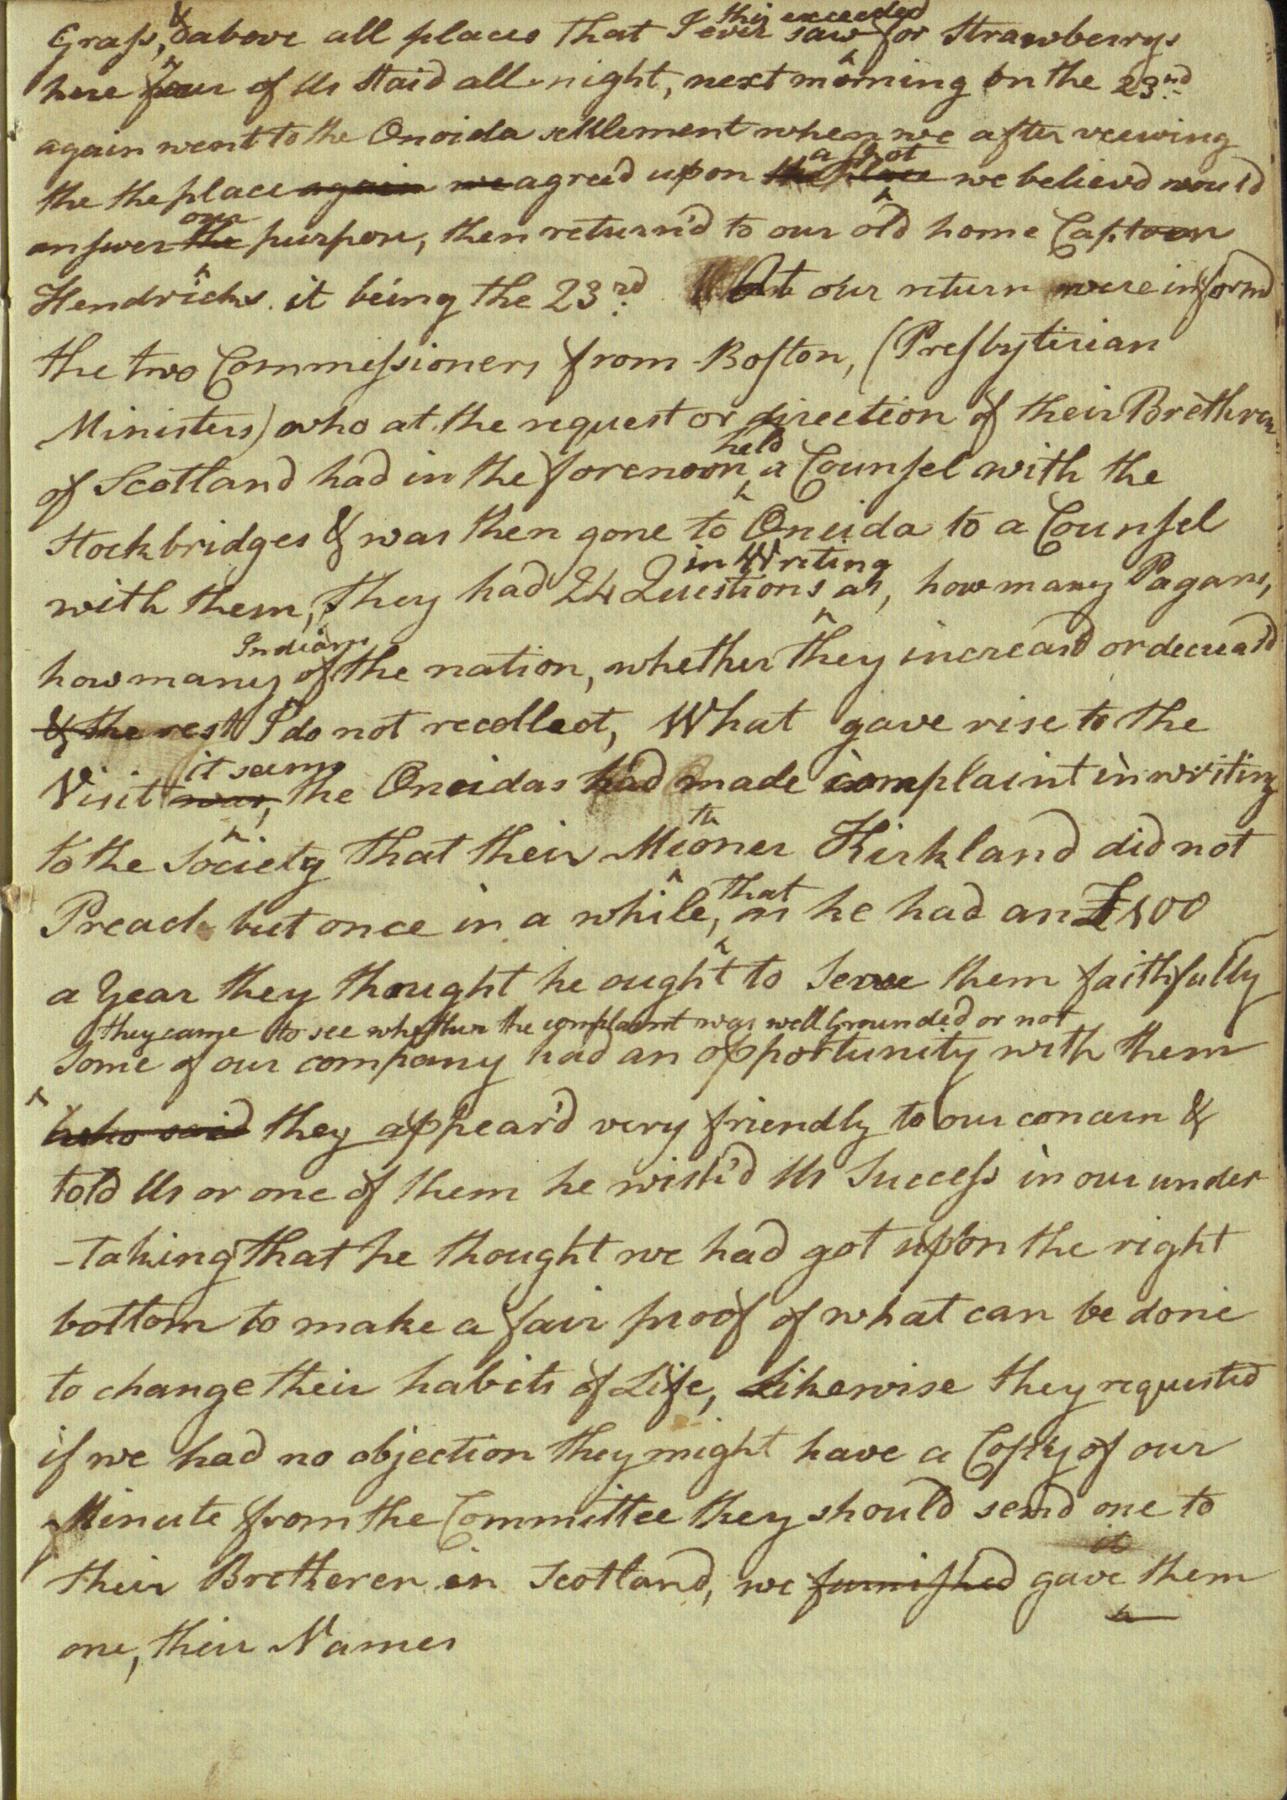 Grass, & above all places that I ever saw this exceeded for Strawberrys
here four of Us Staid all night, next morning on the 23rd
again went to the Onoida settlement when we after veewing
the the place again we agreed upon the place a spot we believd would
answer the our purpose, then return'd to our old home Captoon
Hendricks it being the 23rd. At our return were inform'd
the two Commissioners from Boston, (Presbyterian
Ministers) who at the request or direction of their Brethren
of Scotland had in the forenoon held a Counsel with the
Stockbridges & was then gone to Oneida to a Counsel
with them, they had 24 Questions in Writing as, how many Pagans,
how many Indians of the nation, whether they increas'd or decreas'd
& the rest I do not recollect, What gave rise to the
Visit was, it seems the Oneidas had made complaint in writing
to the Society that their Mioner th Kirkland did not
Preach but once in a while, that as he had an £100
a Year they thought he ought to Serve them faithfully
they came to see whether the complaint was well Grounded or not
Some of our company had an opportunity with them
who said they appear'd very friendly to our concern &
told Us or one of them he wish'd Us Success in our under
-taking that he thought we had got upon the right
bottom to make a fair proof of what can be done
to change their habits of Life, Likewise they requested
if we had no objection they might have a Copy of our
Minute from the Committee they should send one to
their Bretheren in Scotland, we furnished gave it them
one, their Names